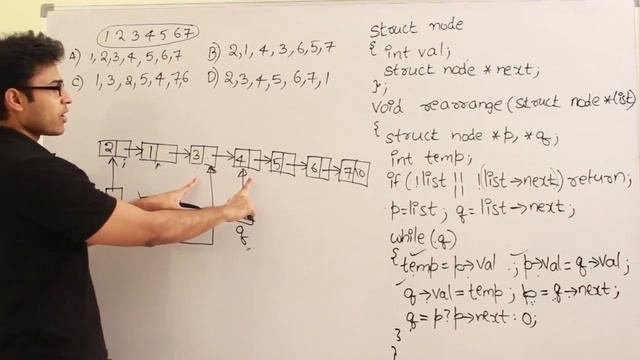 1 2 3 4 5 6 7
A) 1, 2, 3, 4, 5, 6, 7
B) 2, 1, 4, 3, 6, 5, 7
C) 1, 3, 2, 5, 4, 7, 6
D) 2, 3, 4, 5, 6, 7, 1
2 1 3 4 5 6 7 0
q
struct node
{ int val;
struct node *next;
};
void rearrange(struct node *list)
{ struct node *p, *q;
int temp;
if (!list || !list→next) return;
p=list; q= list→next;
while (q)
{ temp = p→val ; p→val = q→val;
q→val = temp ; p = q→next;
q = p? p→next : 0;
}
}